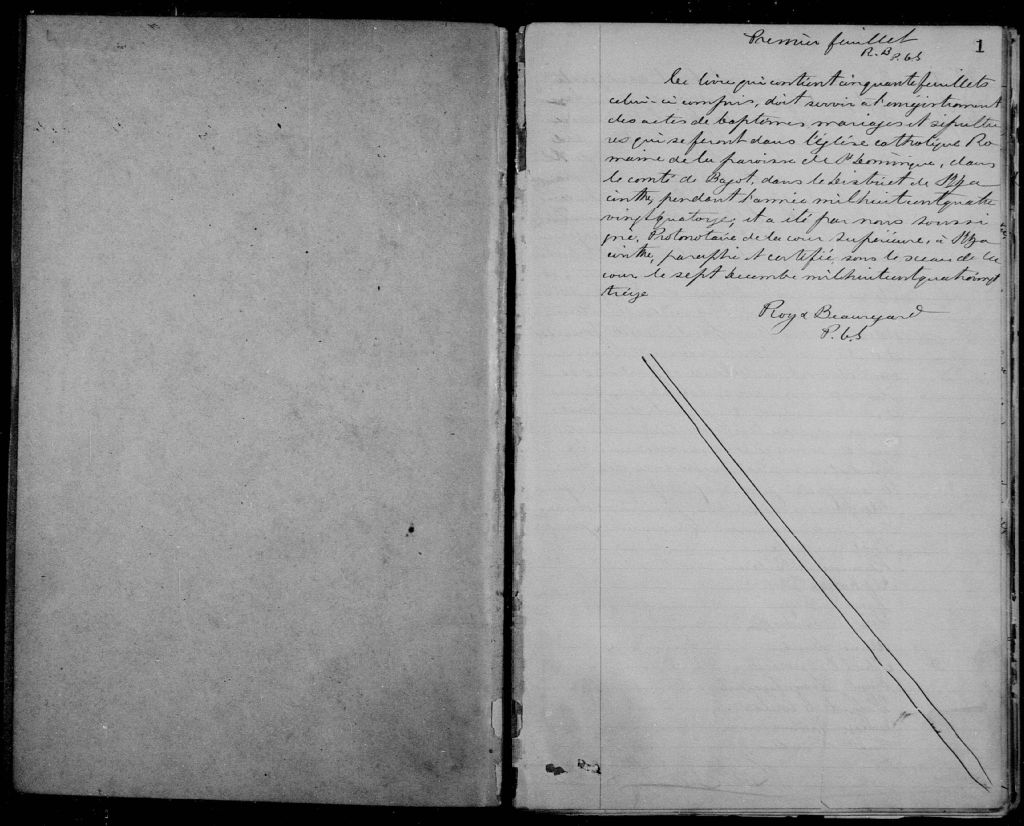 Premier feuillet
1
R. B P.C.S
Ce livre qui contient cinquante feuillets
celui-ci compris, doit servir à l'enregistrement
des actes de baptêmes mariages et sépultu
res qui se feront dans l'église catholique Ro
maine de la paroisse de St Dominique, dans
le comté de Bagot, dans le District de St Hya
cinthe, pendant l'année mil huit cent quatre
vingt quatorze, et a été par nous soussi
gné, Protonotaire de la cour Supérieure, à St Hya
cinthe, paraphé et certifié sous le sceau de la
cour le sept décembre mil huit cent quatrevingt
treize
Roy & Beauregard
P.C.S